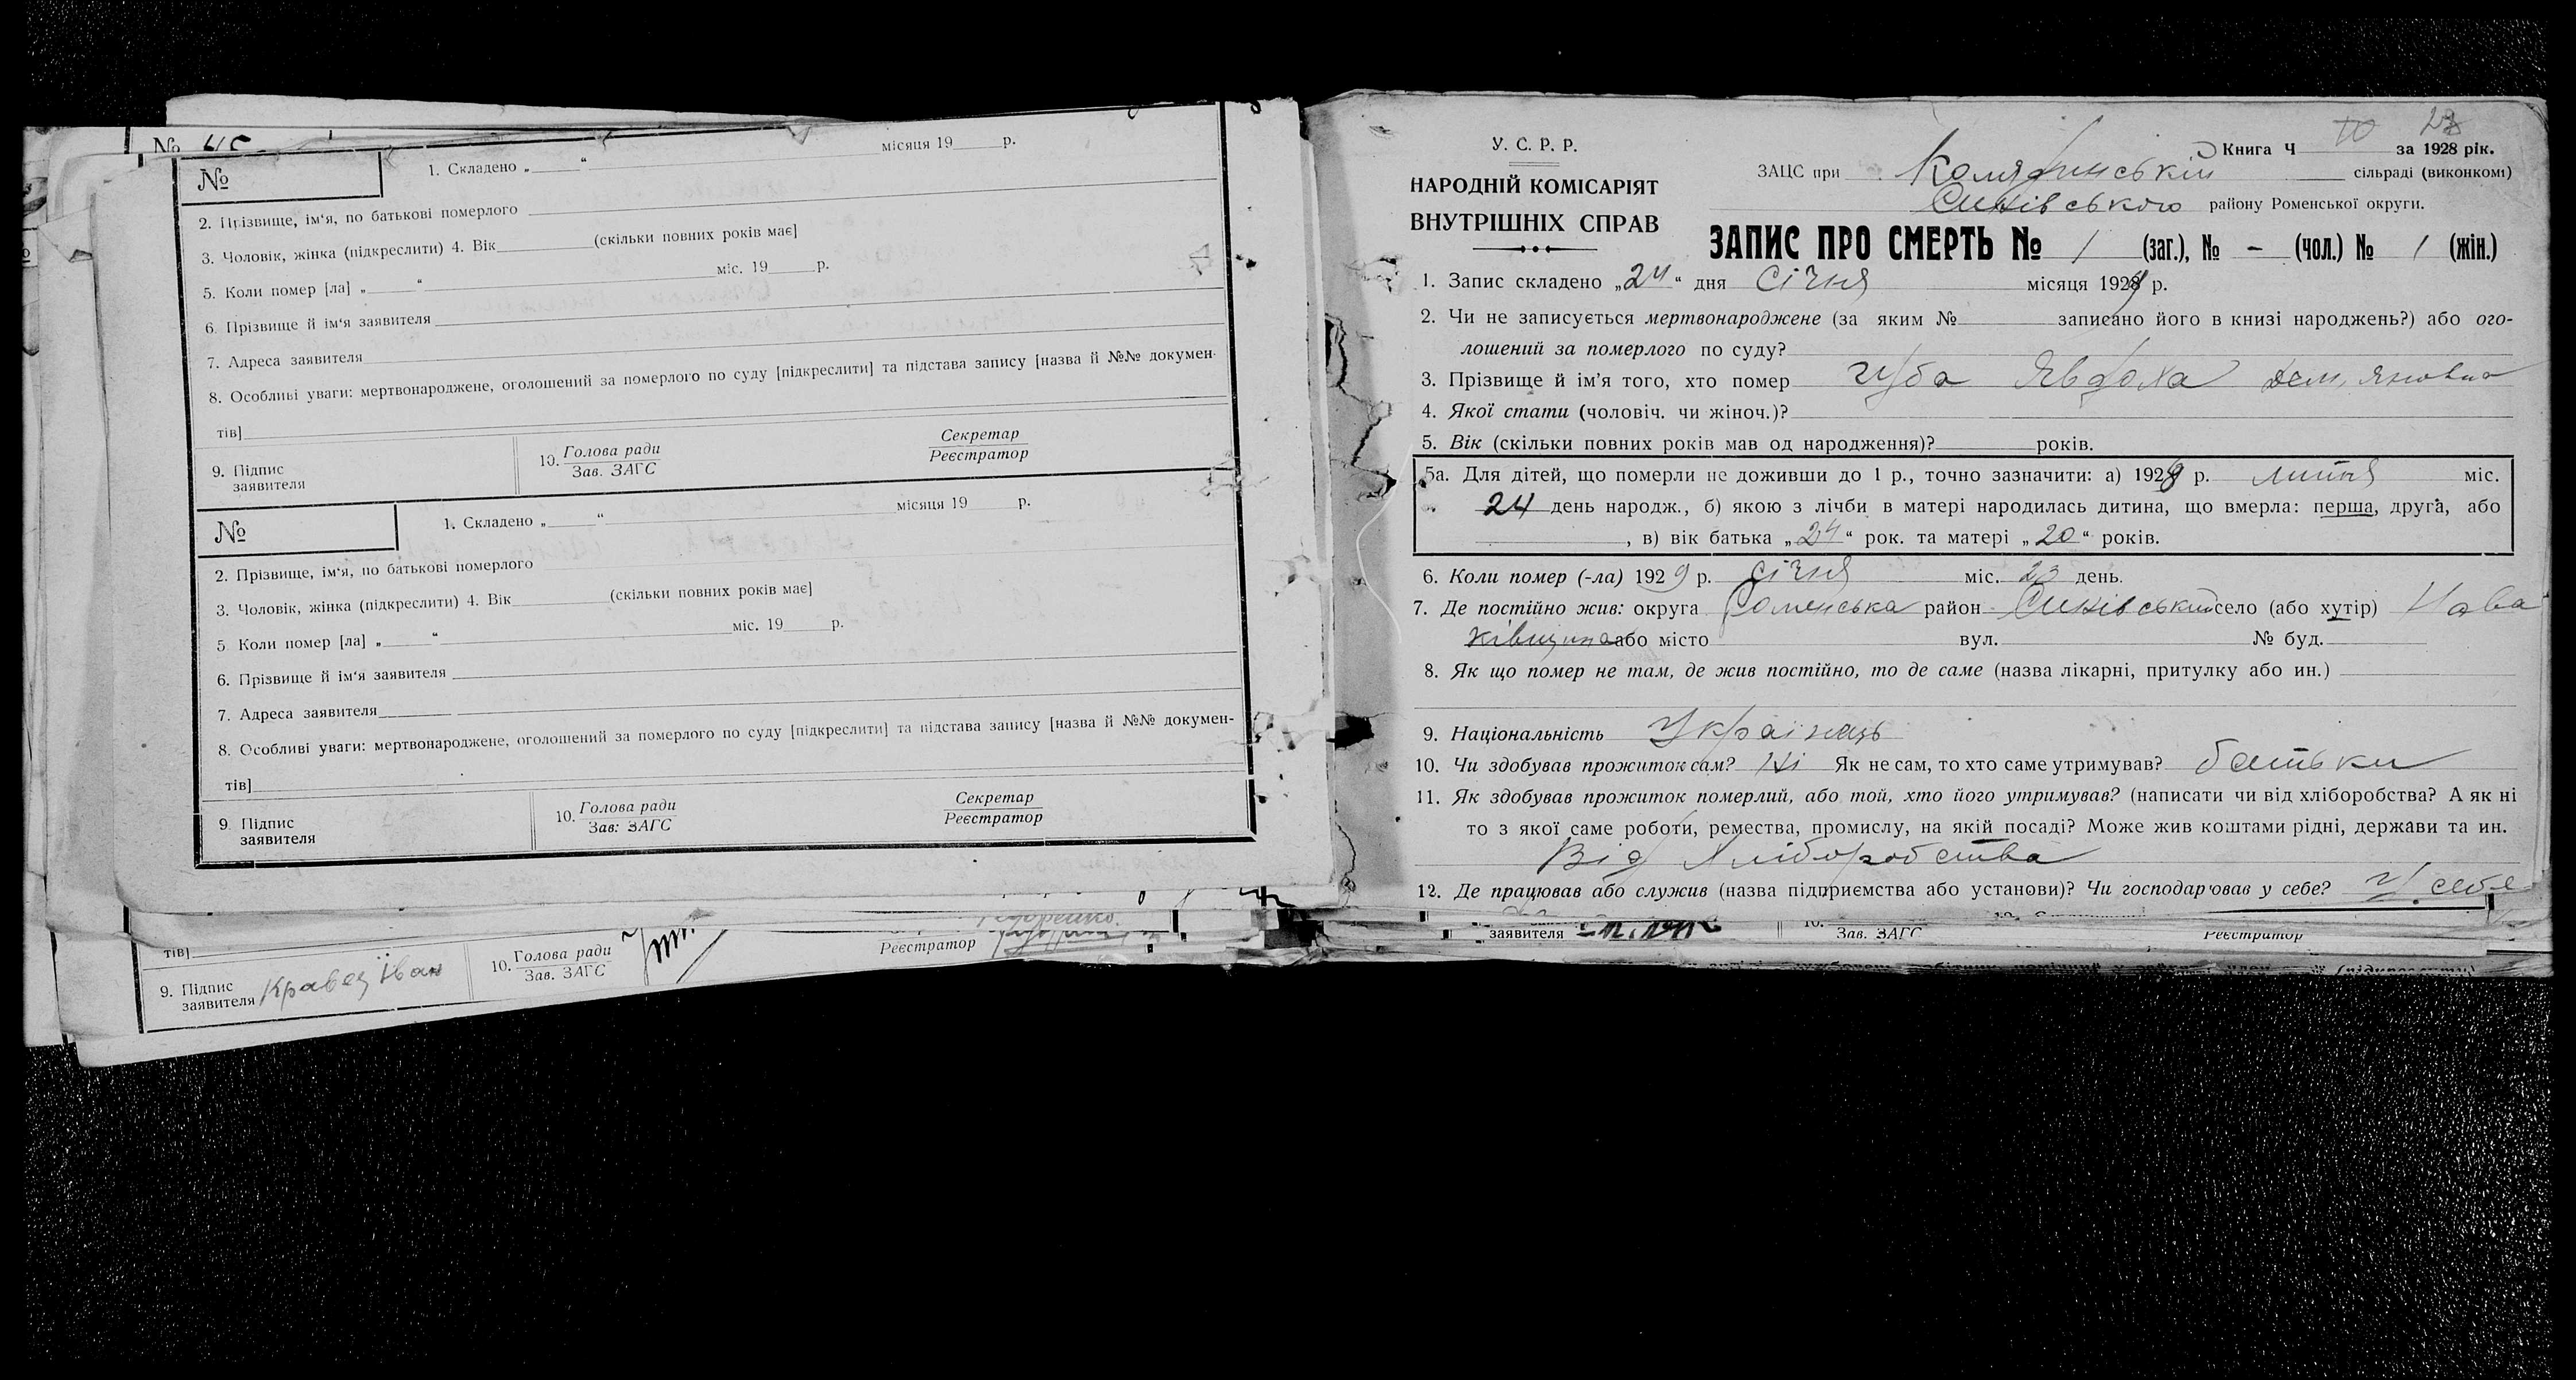 № 45
№
1. Складено „ “ місяця 19 р.
2. Прізвище, ім‘я, по батькові померлого
3. Чоловік, жінка (підкреслити) 4. Вік (скільки повних років має]
5. Коли помер [ла] „ “ міс. 19 р.
6. Прізвище й ім‘я заявителя
7. Адреса заявителя
8. Особливі уваги: мертвонароджене, оголошений за померлого по суду [підкреслити] та підстава запису [назва й №№ докумен-
тів]
9. Підпис заявителя
10. Голова ради Зав. ЗАГС
Секретар Реєстратор
№
1. Складено „ “ місяця 19 р.
2. Прізвище, ім‘я, по батькові померлого
3. Чоловік, жінка (підкреслити) 4. Вік (скільки повних років має]
5 Коли помер [ла] „ “ міс. 19 р.
6. Прізвище й ім‘я заявителя
7. Адреса заявителя
8. Особливі уваги: мертвонароджене, оголошений за померлого по суду [підкреслити] та підстава запису [назва й №№ докумен-
тів]
9. Підпис заявителя
10. Голова ради Зав: ЗАГС
Секретар Реєстратор
тів]
9. Підпис заявителя Кравец Іван
10. Голова ради Зав. ЗАГС
Реєстратор
У. С. Р. Р.
НАРОДНІЙ КОМІСАРІЯТ
ВНУТРІШНІХ СПРАВ
Книга Ч за 1928 рік.
ЗАЦС при сільраді (виконкомі)
Синівського району Роменської округи.
ЗАПИС ПРО СМЕРТЬ № 1 (заг.), № – (чол.) № 1 (жін.)
1. Запис складено „24“ дня Січня місяця 1929 р.
2. Чи не записується мертвонароджене (за яким № записано його в книзі народжень?) або ого-
лошений за померлого по суду?
3. Прізвище й ім’я того, хто помер Чуба Явдоха Дем,яновна
4. Якої стати (чоловіч. чи жіноч.)?
5. Вік (скільки повних років мав од народження)? років.
5а. Для дітей, що померли не доживши до 1 р., точно зазначити: а) 1928 р. липня міс.
24 день народж., б) якою з лічби в матері народилась дитина, що вмерла: перша, друга, або
, в) вік батька „24“ рок. та матері „20“ років.
6. Коли помер (-ла) 1929 р. січня міс. 23 день.
7. Де постійно жив: округа Роменська район Синівський село (або хутір)
або місто вул. № буд.
8. Як що помер не там, де жив постійно, то де саме (назва лікарні, притулку або ин.)
9. Національність Українець
10. Чи здобував прожиток сам? Ні Як не сам, то хто саме утримував? батьки
11. Як здобував прожиток померлий, або той, хто його утримував? (написати чи від хліборобства? А як ні
то з якої саме роботи, ремества, промислу, на якій посаді? Може жив коштами рідні, держави та ин.
Від Хліборобства
12. Де працював або служив (назва підприємства або установи)? Чи господарював у себе? У себе
заявителя
Зав. ЗАГС
Реєстратор